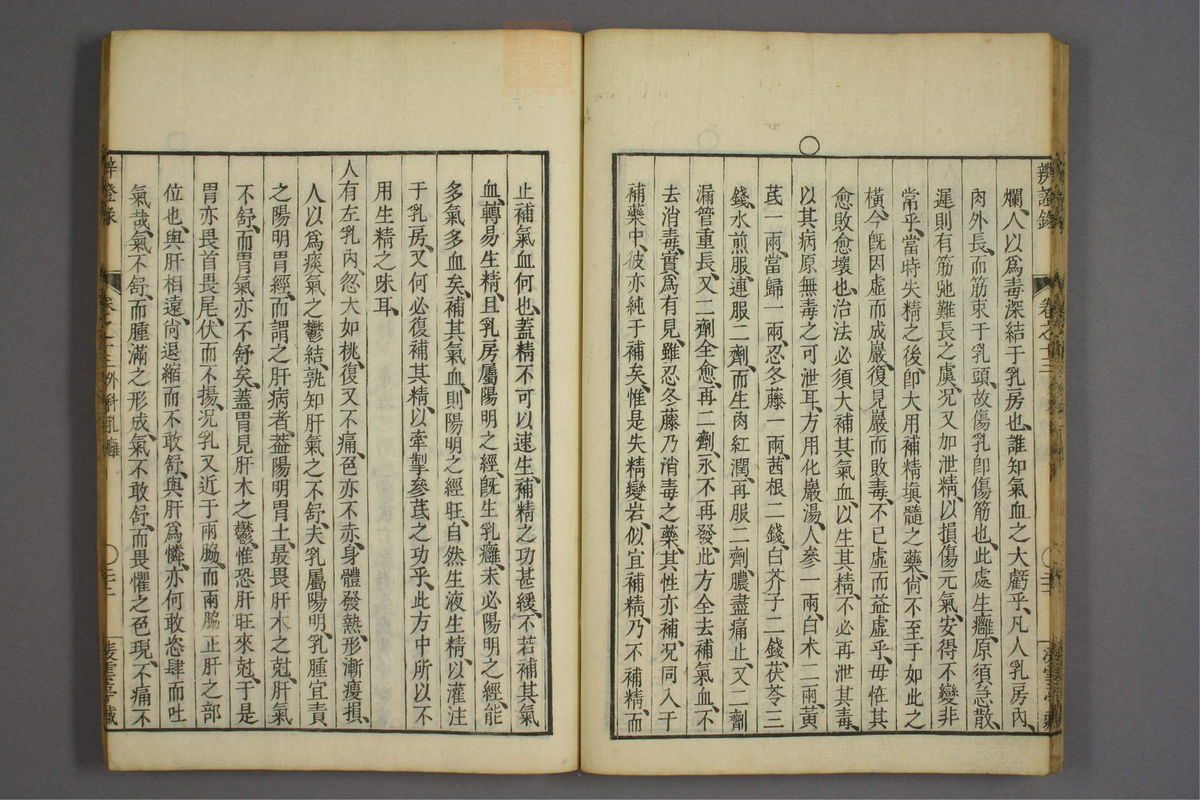 辨證錄 卷之十三
爛、人以爲毒深結于乳房也、誰知氣血之大虧乎、凡人乳房內、
肉外長、而筋束于乳頭、故傷乳卽傷筋也、此處生癰、原須急散、
遲則有筋弛難長之虞、況又加泄精、以損傷元氣、安得不變非
常乎、當時失精之後、卽大用補精塡髓之藥、尙不至于如此之
橫、今旣因虛而成巖、復見巖而敗毒、不已虛而益虛乎、毋怪其
愈敗愈壞也、治法必須大補其氣血、以生其精、不必再泄其毒、
以其病原無毒之可泄耳、方用化巖湯、人參一兩、白术二兩、黃
茋一兩、當歸一兩、忍冬藤一兩、茜根二錢、白芥子二錢、茯苓三
錢、水煎服、連服二劑、而生肉紅潤、再服二劑、膿盡痛止、又二劑
漏管重長、又二劑全愈、再二劑、永不再發、此方全去補氣血、不
去消毒、實爲有見、雖忍冬藤乃消毒之藥、其性亦補、況同入于
補藥中、彼亦純于補矣、惟是失精變岩、似宜補精、乃不補精、而
止補氣血何也、蓋精不可以速生、補精之功甚緩、不若補其氣
血、轉易生精、且乳房屬陽明之經、旣生乳癰、未必陽明之經、能
多氣多血矣、補其氣血、則陽明之經旺、自然生液生精、以灌注
于乳房、又何必復補其精、以牽掣參茋之功乎、此方中所以不
用生精之味耳、
人有左乳內、忽大如桃、復又不痛、色亦不赤、身體發熱、形漸瘦損、
人以爲痰氣之鬱結、孰知肝氣之不舒、夫乳屬陽明、乳腫宜責
之陽明胃經、而謂之肝病者、葢陽明胃土、最畏肝木之尅、肝氣
不舒、而胃氣亦不舒矣、蓋胃見肝木之鬱、惟恐肝旺來尅、于是
胃亦畏首畏尾、伏而不揚、況乳又近于兩脇、而兩脇正肝之部
位也、與肝相遠、尙退縮而不敢舒、與肝爲憐、亦何敢恣肆而吐
氣哉、氣不舒、而腫滿之形成、氣不敢舒、而畏懼之色現、不痛不
卷之十三 外科乳癰